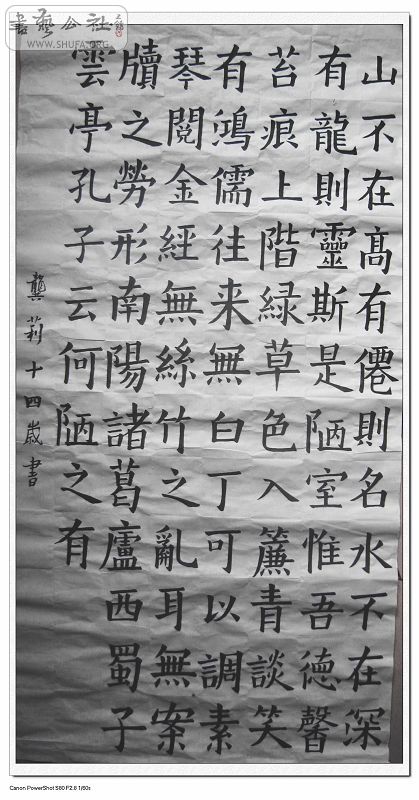 書藝公社
WWW.SHUFA.ORG
山不在髙有僊則名水不在深
有龍則靈斯是陋室惟吾德馨
苔痕上階緑草色入簾青談笑
有鴻儒往来無白丁可以調素
琴閲金經無絲竹之亂耳無案
牘之勞形南陽諸葛廬西蜀子
雲亭孔子云何陋之有
龔莉十四歲書
Canon PowerShot S80 F2.8 1/60s